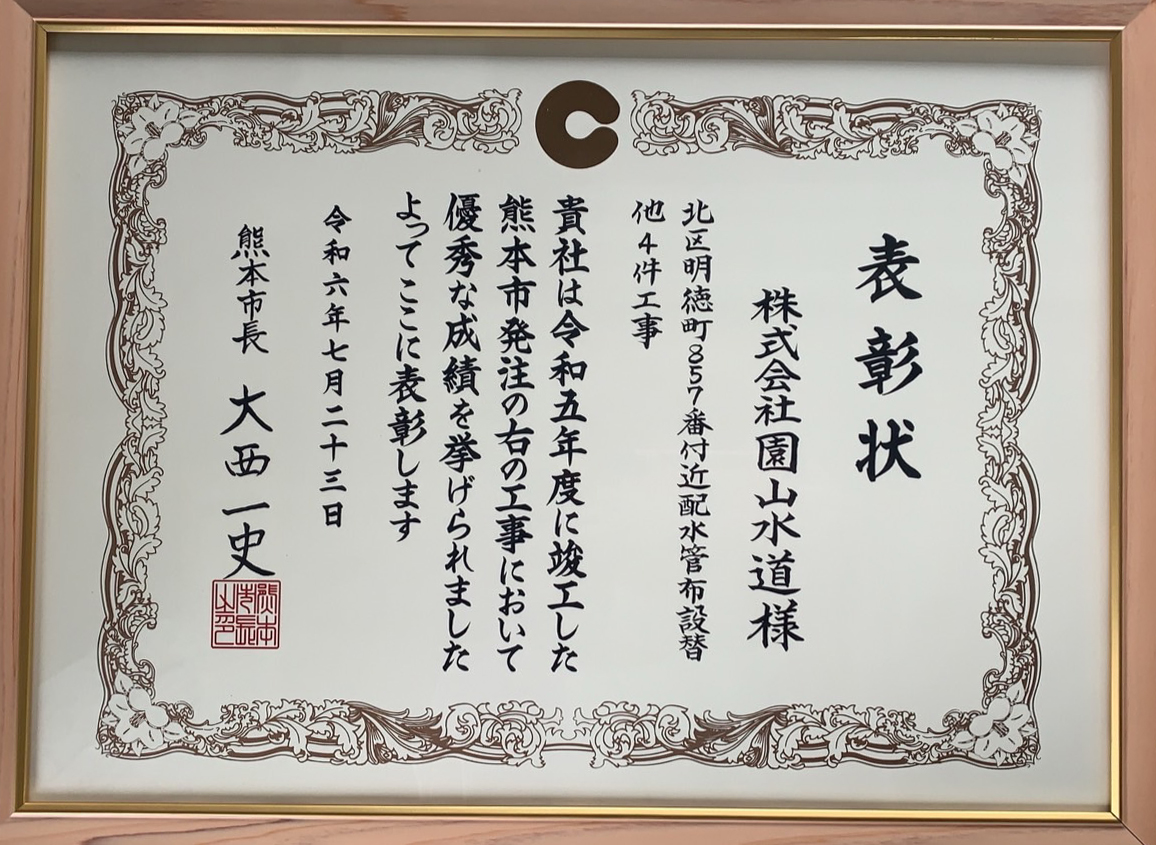 表彰状
株式会社園山水道様
北区明徳町857番付近配水管布設替
他4件工事
貴社は令和五年度に竣工した
熊本市発注の右の工事において
優秀な成績を挙げられました
よってここに表彰します
令和六年七月二十三日
熊本市長 大西一史
熊本
市長
之印